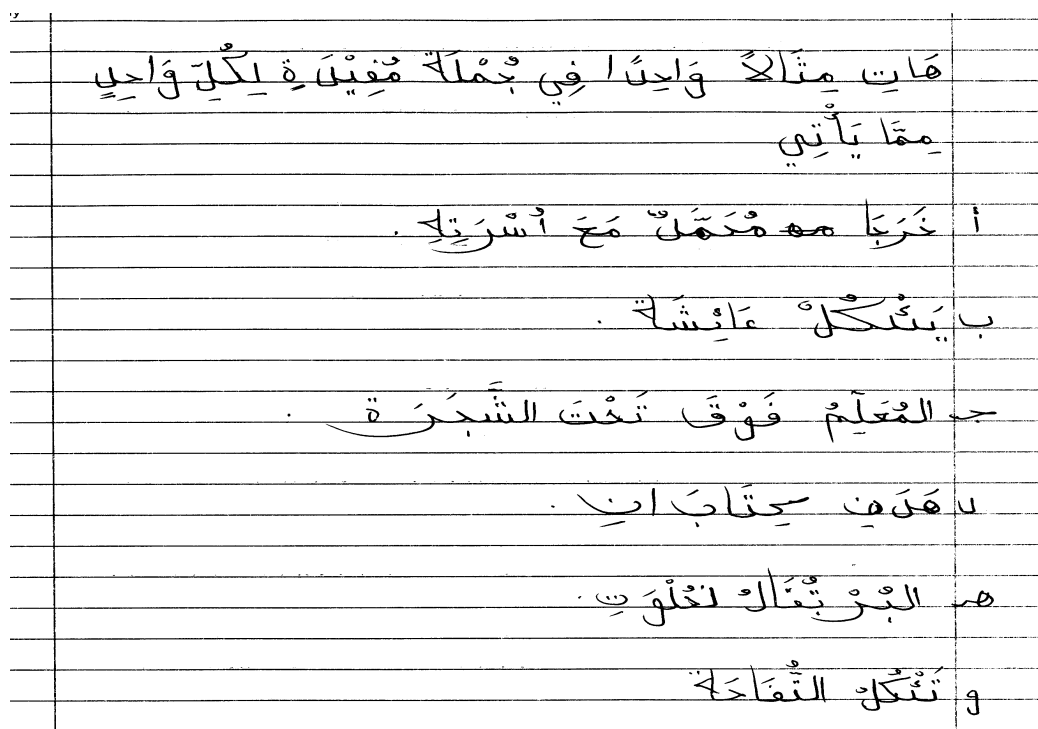 هَاتِ مِثَالاً وَاحِدًا فِي جُمْلَةٍ مُفِيْدَةٍ لِكُلِّ وَاحِدٍ
مِمَّا يَأْتِي
أ خَرَجَا مُحَمَّدٌ مَعَ أُسْرَتِهِ .
ب يَئْكُلُ عَائِشَة .
جـ المُعَلِّمُ فَوْقَ تَحْتَ الشَّجَرَة .
د هَذَهِ كِتَابَانِ .
هـ البُرْتُقَالُ لحُلْوَتِ .
و تَئْكُلُ التُّفَاحَة